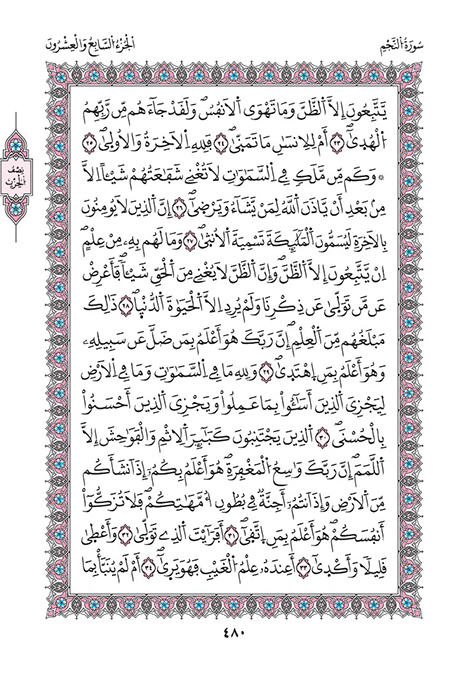 سُورَةُ النَّجْمِ
الجُزْءُ السَّابِعُ وَالعِشْرُونَ
يَّتَّبِعُونَ إِلَّا اَلظَّنَّ وَمَا تَهْوَى اَلَانفُسُ وَلَقَدْ جَآءَهُم مِّن رَّبِّهِمُ
اُلْهُدَىٰٓ ٢٣ أَمْ لِلِانسَٰنِ مَا تَمَنَّىٰ ٢٤ فَلِلهِ اِلَاخِرَةُ وَالُاولَىٰ ٢٥
۞ وَكَم مِّن مَّلَكٖ فِے اِلسَّمَٰوَٰتِ لَا تُغْنِے شَفَٰعَتُهُمْ شَيْـًٔا اِلَّا
مِنۢ بَعْدِ أَنْ يَّاذَنَ اَللَّهُ لِمَنْ يَّشَآءُ وَيَرْضَىٰٓ ٢٦ إِنَّ اَلذِينَ لَا يُومِنُونَ
بِالَاخِرَةِ لَيُسَمُّونَ اَلْمَلَٰٓئِكَةَ تَسْمِيَةَ اَلُانثَىٰ ٢٧ وَمَا لَهُم بِهِۦ مِنْ عِلْمٍ
اِنْ يَّتَّبِعُونَ إِلَّا اَلظَّنَّ وَإِنَّ اَلظَّنَّ لَا يُغْنِے مِنَ اَلْحَقِّ شَيْـٔاً فَأَعْرِضْ
عَن مَّن تَوَلَّىٰ عَن ذِكْرِنَا وَلَمْ يُرِدِ اِلَّا اَلْحَيَوٰةَ اَلدُّنْيَا ٢٨ ذَٰلِكَ
مَبْلَغُهُم مِّنَ اَلْعِلْمِ إِنَّ رَبَّكَ هُوَ أَعْلَمُ بِمَن ضَلَّ عَن سَبِيلِهِۦ
وَهُوَ أَعْلَمُ بِمَنِ اِهْتَدَىٰ ٢٩ وَلِلهِ مَا فِے اِلسَّمَٰوَٰتِ وَمَا فِے اِلَارْضِ
لِيَجْزِيَ اَلذِينَ أَسَٰٓـُٔواْ بِمَا عَمِلُواْ وَيَجْزِيَ اَلذِينَ أَحْسَنُواْ
بِالْحُسْنَى ٣٠ اَلذِينَ يَجْتَنِبُونَ كَبَٰٓئِرَ اَلِاثْمِ وَالْفَوَٰحِشَ إِلَّا
اَللَّمَمَ إِنَّ رَبَّكَ وَٰسِعُ اُلْمَغْفِرَةِ هُوَ أَعْلَمُ بِكُمُۥٓ إِذَ اَنشَأَكُم
مِّنَ اَلَارْضِ وَإِذَ اَنتُمُۥٓ أَجِنَّةٞ فِے بُطُونِ أُمَّهَٰتِكُمْ فَلَا تُزَكُّوٓاْ
أَنفُسَكُمْ هُوَ أَعْلَمُ بِمَنِ اِتَّقَىٰٓ ٣١ أَفَرَٰٓيْتَ اَلذِے تَوَلَّىٰ ٣٢ وَأَعْطَىٰ
قَلِيلٗا وَأَكْدَىٰٓ ٣٣ أَعِندَهُۥ عِلْمُ اُلْغَيْبِ فَهُوَ يَرَىٰٓ ٣٤ أَمْ لَمْ يُنَبَّأْ بِمَا
نِصْفُ
الحِزْبِ
٤٨٠